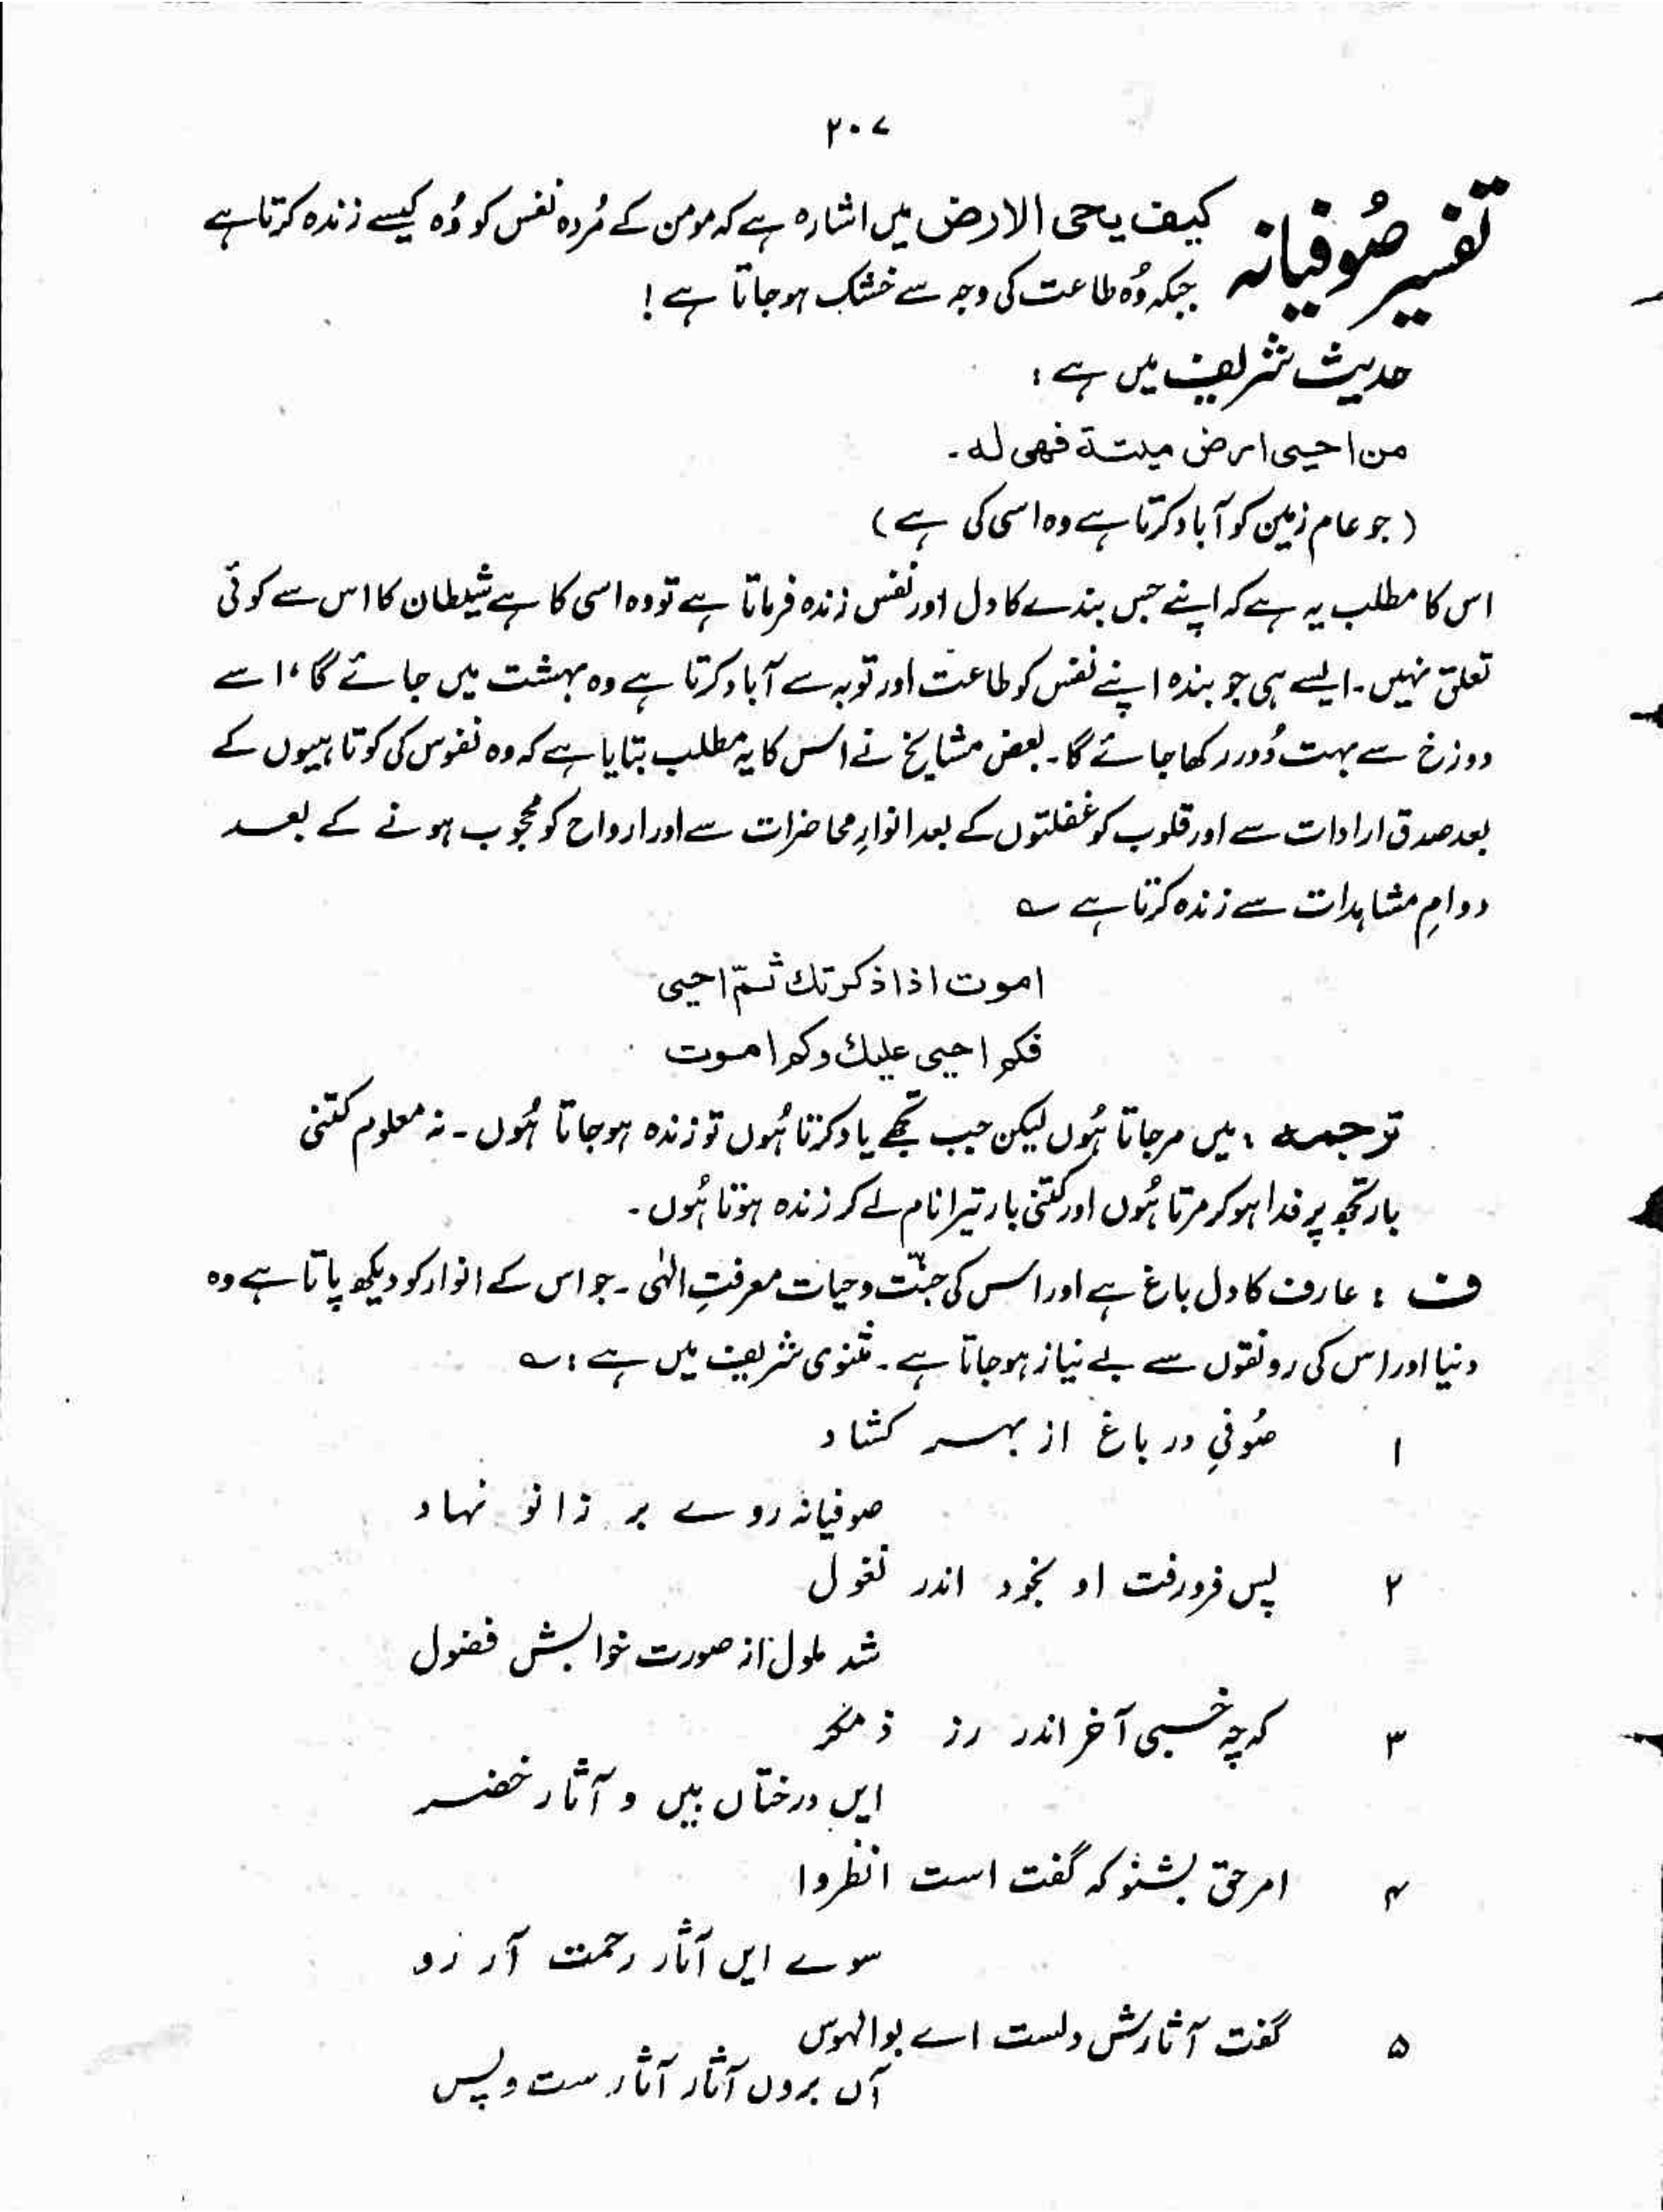 ۲۰۷
تفسیر صُوفیانہ
کیف یحی الارض میں اشارہ ہے کہ مومن کے مُردہ نفس کو وُہ کیسے زندہ کرتا ہے
جبکہ وُہ طاعت کی وجہ سے خشک ہوجاتا ہے !
حدیث شریف میں ہے :
من احیی ارض میتة فھی له ۔
( جو عام زمین کو آباد کرتا ہے وہ اسی کی ہے )
اس کا مطلب یہ ہے کہ اپنے جس بندے کا دل اور نفس زندہ فرماتا ہے تو وہ اسی کا ہے شیطان کا اس سے کوئی
تعلق نہیں ۔ ایسے ہی جو بندہ اپنے نفس کو طاعت اور توبہ سے آباد کرتا ہے وہ بہشت میں جائے گا ، اسے
دوزخ سے بہت دُور رکھا جائے گا ۔ بعض مشایخ نے اس کا یہ مطلب بتایا ہے کہ وہ نفوس کی کوتاہیوں کے
بعد صدق ارادات سے اور قلوب کو غفلتوں کے بعد انوارِ محاضرات سے اور ارواح کو محجوب ہونے کے بعد
دوامِ مشاہدات سے زندہ کرتا ہے ؎
اموت اذا ذکرتك ثمّ احیی
فکم احیی علیك وکم اموت
ترجمہ : میں مر جاتا ہُوں لیکن جب تجھے یاد کرتا ہُوں تو زندہ ہوجاتا ہُوں ۔ نہ معلوم کتنی
بار تجھ پر فدا ہو کر مرتا ہُوں اور کتنی بار تیرا نام لے کر زندہ ہوتا ہُوں ۔
ف : عارف کا دل باغ ہے اور اس کی جنّت و حیات معرفتِ الہٰی ۔ جو اس کے انوار کو دیکھ پاتا ہے وہ
دنیا اور اس کی رونقوں سے بے نیاز ہوجاتا ہے ۔ مثنوی شریف میں ہے : ؎
۱ صُوفیِ در باغ از بہر کشاد
صوفیانہ روے بر زانو نہاد
۲ پس فرو رفت او بخود اندر نغول
شد ملول از صورت خوابش فضول
۳ کہ چہ خسپی آخر اندر رز ذ مگر
ایں درختاں بیں و آثار خضر
۴ امر حق بشنو کہ گفت است انظروا
سوے ایں آثار رحمت آر رو
۵ گفت آثارش دلست اے بوالہوس
آں بروں آثار آثار ست و پس